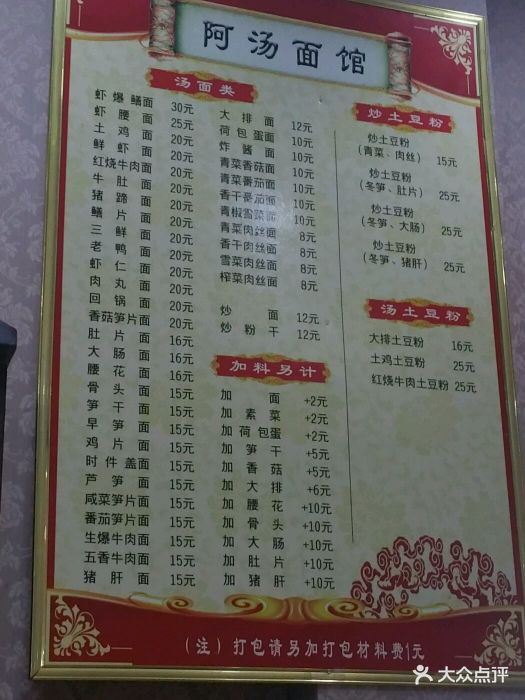 阿汤面馆
汤面类
虾爆鳝面 30元
虾腰面 25元
土鸡面 20元
鲜虾面 20元
红烧牛肉面 20元
牛肚面 20元
猪蹄面 20元
鳝片面 20元
三鲜面 20元
老鸭面 20元
虾仁面 20元
肉丸面 20元
回锅面 20元
香菇笋片面 20元
肚片面 16元
大肠面 16元
腰花面 16元
骨头面 15元
笋干面 15元
早笋面 15元
鸡片面 15元
时件盖面 15元
芦笋面 15元
咸菜笋片面 15元
番茄笋片面 15元
生爆牛肉面 15元
五香牛肉面 15元
猪肝面 15元
大排面 12元
荷包蛋面 10元
炸酱面 10元
青菜香菇面 10元
青菜番茄面 10元
香干番茄面 10元
青椒雪菜面 10元
青菜肉丝面 8元
香干肉丝面 8元
雪菜肉丝面 8元
榨菜肉丝面 8元
炒面 12元
炒粉干 12元
加料另计
加面 +2元
加素菜 +2元
加荷包蛋 +2元
加笋干 +5元
加香菇 +5元
加大排 +6元
加腰花 +10元
加骨头 +10元
加大肠 +10元
加肚片 +10元
加猪肝 +10元
炒土豆粉
炒土豆粉
(青菜、肉丝) 15元
炒土豆粉
(冬笋、肚片) 25元
炒土豆粉
(冬笋、大肠) 25元
炒土豆粉
(冬笋、猪肝) 25元
汤土豆粉
大排土豆粉 16元
土鸡土豆粉 25元
红烧牛肉土豆粉 25元
(注)打包请另加打包材料费1元
大众点评